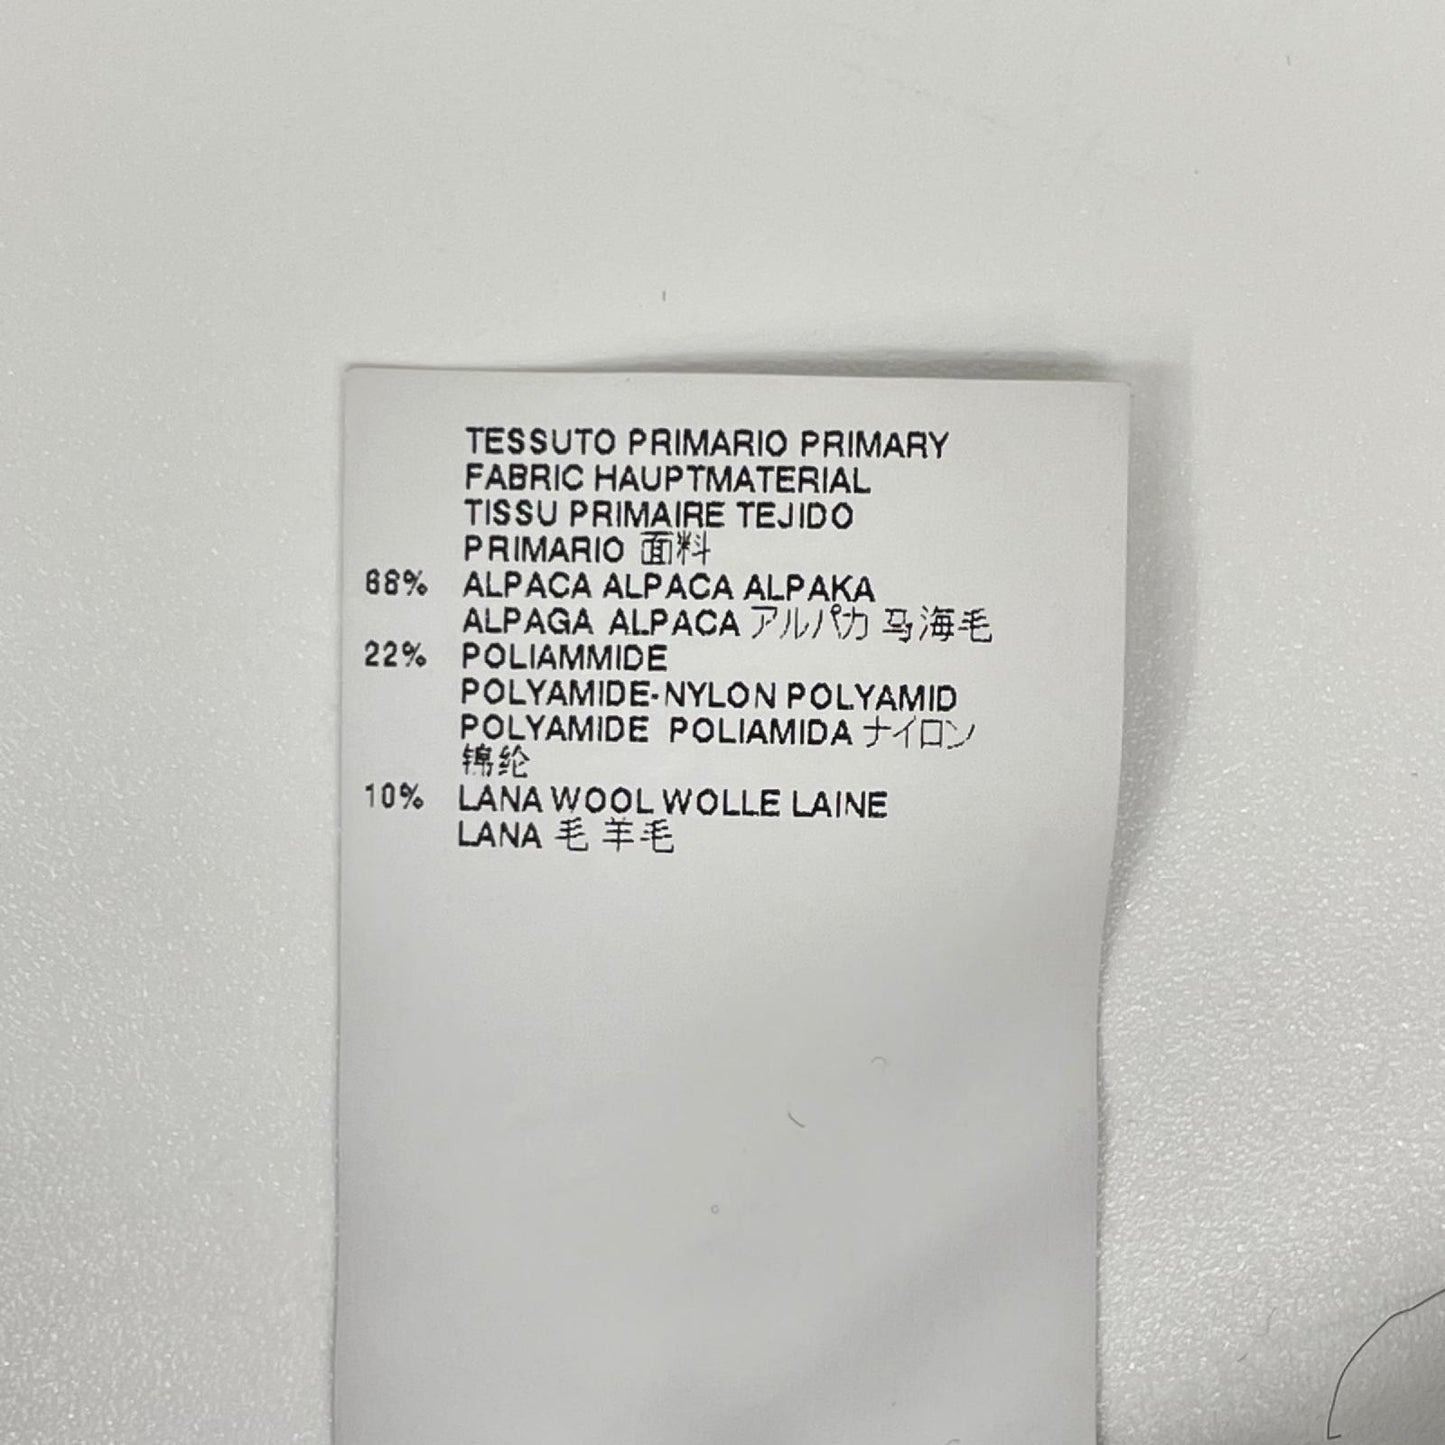 TESSUTO PRIMARIO PRIMARY
FABRIC HAUPTMATERIAL
TISSU PRIMAIRE TEJIDO
PRIMARIO 面料
68% ALPACA ALPACA ALPAKA
ALPAGA ALPACA アルパカ 马海毛
22% POLIAMMIDE
POLYAMIDE-NYLON POLYAMID
POLYAMIDE POLIAMIDA ナイロン
锦纶
10% LANA WOOL WOLLE LAINE
LANA 毛 羊毛